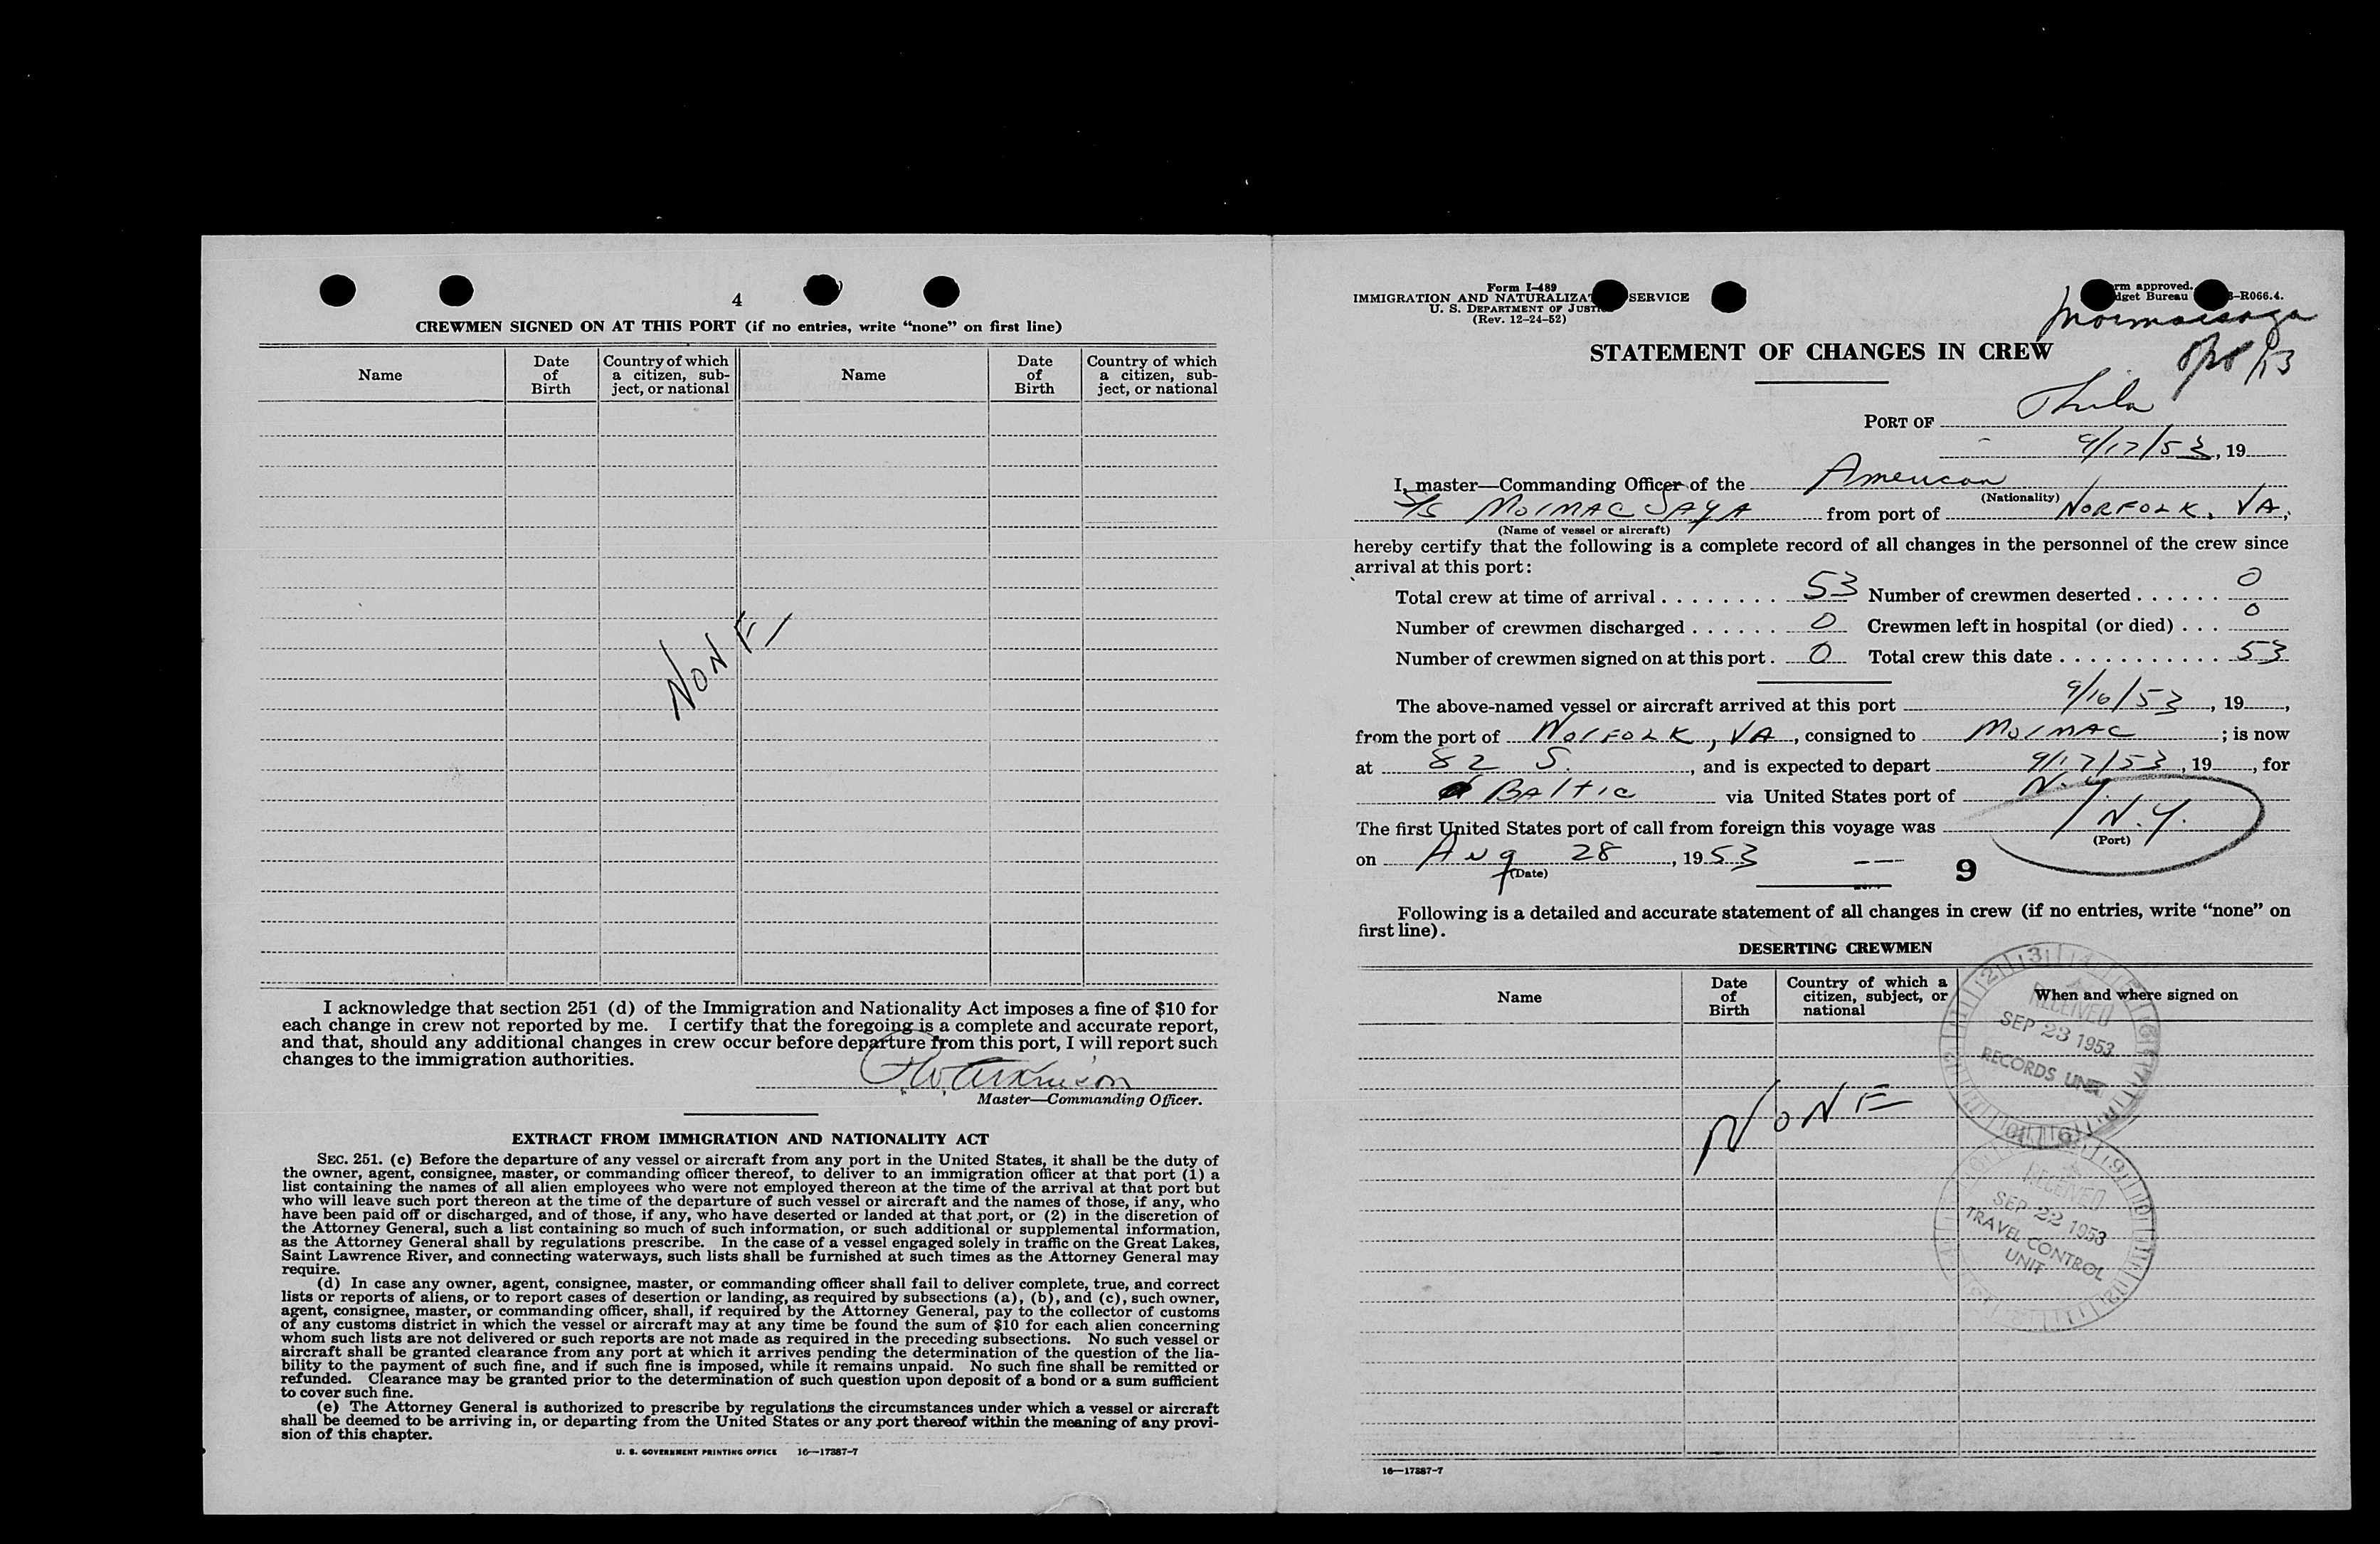 4
CREWMEN SIGNED ON AT THIS PORT (if no entries, write “none” on first line)
Name
Date of Birth
Country of which a citizen, subject, or national
Name
Date of Birth
Country of which a citizen, subject, or national
NONE
I acknowledge that section 251 (d) of the Immigration and Nationality Act imposes a fine of $10 for
each change in crew not reported by me. I certify that the foregoing is a complete and accurate report,
and that, should any additional changes in crew occur before departure from this port, I will report such
changes to the immigration authorities.
Master—Commanding Officer.
EXTRACT FROM IMMIGRATION AND NATIONALITY ACT
SEC. 251. (c) Before the departure of any vessel or aircraft from any port in the United States, it shall be the duty of
the owner, agent, consignee, master, or commanding officer thereof, to deliver to an immigration officer at that port (1) a
list containing the names of all alien employees who were not employed thereon at the time of the arrival at that port but
who will leave such port thereon at the time of the departure of such vessel or aircraft and the names of those, if any, who
have been paid off or discharged, and of those, if any, who have deserted or landed at that port, or (2) in the discretion of
the Attorney General, such a list containing so much of such information, or such additional or supplemental information,
as the Attorney General shall by regulations prescribe. In the case of a vessel engaged solely in traffic on the Great Lakes,
Saint Lawrence River, and connecting waterways, such lists shall be furnished at such times as the Attorney General may
require.
(d) In case any owner, agent, consignee, master, or commanding officer shall fail to deliver complete, true, and correct
lists or reports of aliens, or to report cases of desertion or landing, as required by subsections (a), (b), and (c), such owner,
agent, consignee, master, or commanding officer, shall, if required by the Attorney General, pay to the collector of customs
of any customs district in which the vessel or aircraft may at any time be found the sum of $10 for each alien concerning
whom such lists are not delivered or such reports are not made as required in the preceding subsections. No such vessel or
aircraft shall be granted clearance from any port at which it arrives pending the determination of the question of the lia-
bility to the payment of such fine, and if such fine is imposed, while it remains unpaid. No such fine shall be remitted or
refunded. Clearance may be granted prior to the determination of such question upon deposit of a bond or a sum sufficient
to cover such fine.
(e) The Attorney General is authorized to prescribe by regulations the circumstances under which a vessel or aircraft
shall be deemed to be arriving in, or departing from the United States or any port thereof within the meaning of any provi-
sion of this chapter.
U. S. GOVERNMENT PRINTING OFFICE 16—17387-7
Form I-489
IMMIGRATION AND NATURALIZAT SERVICE
U. S. DEPARTMENT OF JUSTI
(Rev. 12-24-52)
rm approved.
dget Bureau -R066.4.
Mormacsaga
STATEMENT OF CHANGES IN CREW
PORT OF Phila
9/17/53, 19
I, master—Commanding Officer of the American
(Nationality)
S/S MORMACSAGA from port of NORFOLK, VA,
(Name of vessel or aircraft)
hereby certify that the following is a complete record of all changes in the personnel of the crew since
arrival at this port:
Total crew at time of arrival 53 Number of crewmen deserted 0
Number of crewmen discharged 0 Crewmen left in hospital (or died) 0
Number of crewmen signed on at this port 0 Total crew this date 53
The above-named vessel or aircraft arrived at this port 9/16/53, 19 ,
from the port of NORFOLK, VA, consigned to MORMAC ; is now
at 82 S. , and is expected to depart 9/17/53, 19 , for
Baltic via United States port of N.Y.
The first United States port of call from foreign this voyage was N.Y.
(Port)
on Aug 28, 1953
(Date)
9
Following is a detailed and accurate statement of all changes in crew (if no entries, write “none” on
first line).
DESERTING CREWMEN
Name
Date of Birth
Country of which a citizen, subject, or national
When and where signed on
NONE
RECEIVED
SEP 23 1953
RECORDS UNIT
RECEIVED
SEP 22 1953
TRAVEL CONTROL
UNIT
16—17387-7